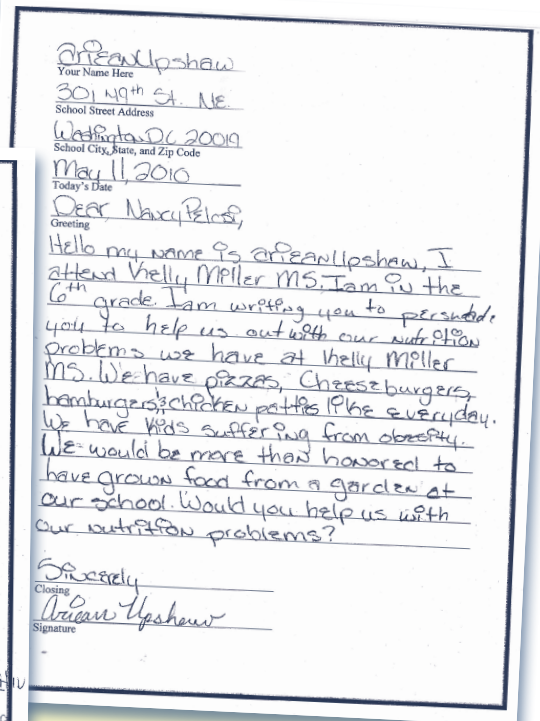 ariean Upshaw
Your Name Here
301 49th St. NE.
School Street Address
Washington D.C 20019
School City, State, and Zip Code
May 11, 2010
Today's Date
Dear Nancy Pelosi,
Greeting
Hello my name is ariean Upshaw, I
attend Kelly Miller MS. I am in the
6th grade. I am writing you to persuade
you to help us out with our nutrition
problems we have at Kelly Miller
MS. We have pizzas, Cheeseburgers,
hamburgers, chicken patties like everyday.
We have kids suffering from obesity.
We would be more than honored to
have grown food from a garden at
our school. Would you help us with
our nutrition problems?
Sincerely
Closing
Ariean Upshaw
Signature